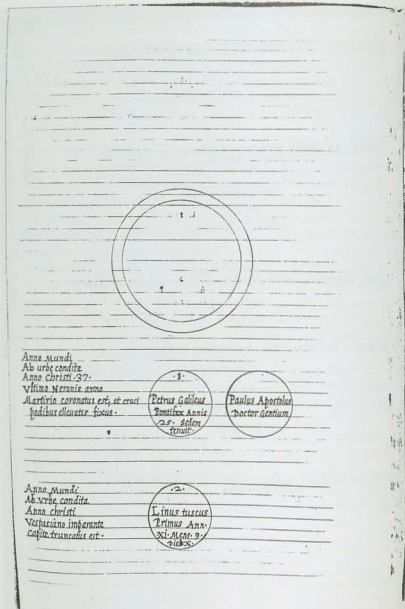 Anno Mundi
Ab urbe condita
Anno Christi · 37 ·
Vltimo Neronis anno
Martirio coronatus est, et cruci
pedibus elleuatis fixus ·
· 1 ·
Petrus Galileus
Pontifex Annis
· 25 · Sedem
tenuit
Paulus Apostolus
Doctor Gentium
Anno Mundi
Ab Vrbe condita
Anno christi
Vespasiano imperante
Capite truncatus est ·
· 2 ·
Linus tuscus
Primus Ann·
XI · Mens · 3 ·